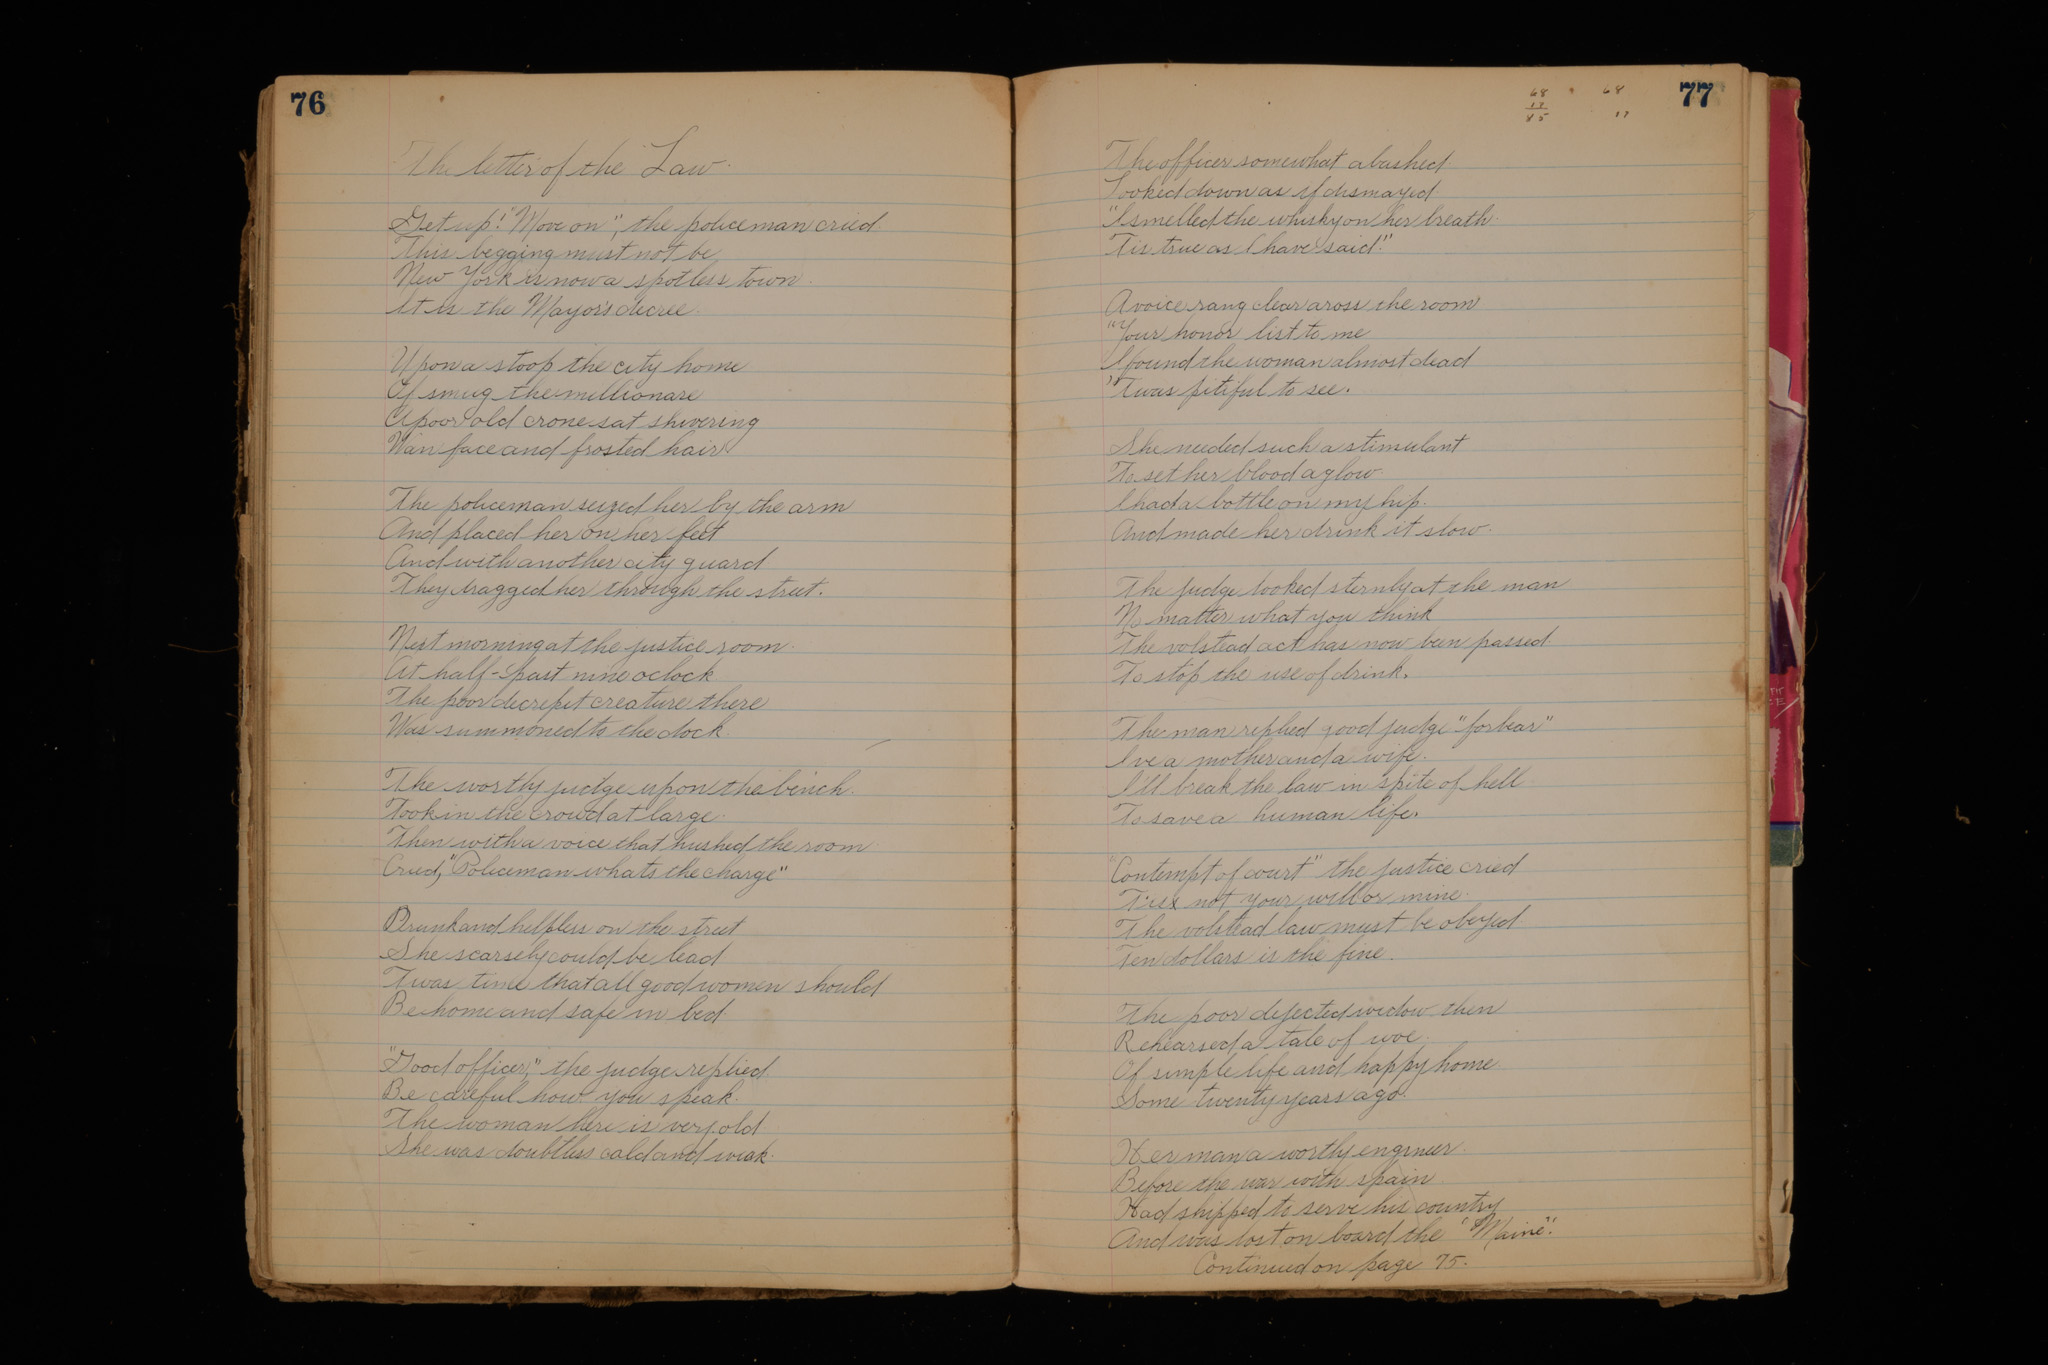 76
The letter of the Law.
Get up! "Move on", the policeman cried
This begging must not be
New York is now a spotless town.
It is the Mayor's decree.
Upon a stoop the city home
Of smug the millionare
A poor old crone sat shivering
Wan face and frosted hair
The policeman seized her by the arm
And placed her on her feet
And with another city guard
They dragged her through the street.
Next morning at the justice room.
At half-past nine oclock
The poor decrepit creature there
Was summoned to the dock
The worthy judge upon the bench.
Took in the crowd at large.
Then with a voice that hushed the room
Cried, "Policeman whats the charge"
Drunk and helpless on the street
She scarsely could be lead
Twas time that all good women should
Be home and safe in bed
"Good officer," the judge replied
Be careful how you speak.
The woman here is very old
She was doubtless cold and weak.
77
68
17
85
68
17
The officer somewhat abashed
Looked down as if dismayed
"I smelled the whisky on her breath.
Tis true as I have said."
A voice rang clear aross the room
"Your honor list to me
I found the woman almost dead
'Twas pitiful to see.
She needed such a stimulant
To set her blood aglow.
I had a bottle on my hip.
And made her drink it slow.
The judge looked sternly at the man
No matter what you think
The volstead act has now been passed.
To stop the use of drink.
The man replied good judge "forbear"
Ive a mother and a wife.
I'll break the law in spite of hell
To save a human life.
"Contempt of court" the justice cried
Tis not your will or mine.
The volstead law must be obeyed
Ten dollars is the fine.
The poor dejected widow then
Rehearsed a tale of woe.
Of simple life and happy home
Some twenty years ago.
Her man a worthy engineer.
Before the war with spain
Had shipped to serve his country
And was lost on board the "Maine".
Continued on page 75.